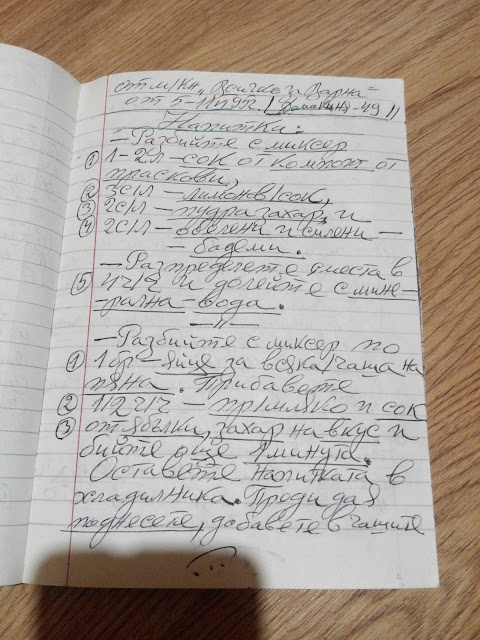 от м/кн „Всичко за Варна“
от 5-11.1992г. /Домакиня-49//
Напитки:
-Разбийте с миксер
① 1-2л-сок от компот от
праскови,
② 3с/л-лимонов/сок,
③ 2с/л-пудра захар, и
④ 2с/л-обелени и смлени-
-бадеми.
-Разпределете сместа в
⑤ 4ч/ч и долейте с мине-
рална-вода.
-//-
-Разбийте с миксер по
① 1бр-яйце за всяка/чаша на
пяна. Прибавете
② 1/2ч/ч-пр/мляко и сок
③ от ябълки, захар на вкус и
бийте още 1минута.
Оставете напитката в
хладилника. Преди да я
поднесете, добавете в чашите
...